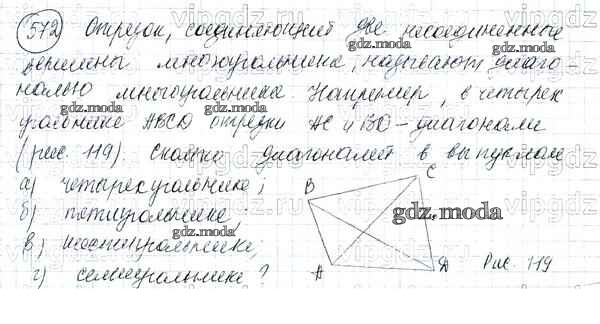 572 Отрезок, соединяющий две несоединенные
вершины многоугольника, называют диаго-
налью многоугольника. Например, в четырех
угольнике ABCD отрезки AC и BD - диагонали
(рис. 119). Сколько диагоналей в выпуклом
а) четырехугольнике;
б) пятиугольнике;
в) шестиугольнике,
г) семиугольнике?
B
C
A
D
Рис. 119
gdz.moda
gdz.moda
gdz.moda
gdz.moda
gdz.moda
gdz.moda
gdz.moda